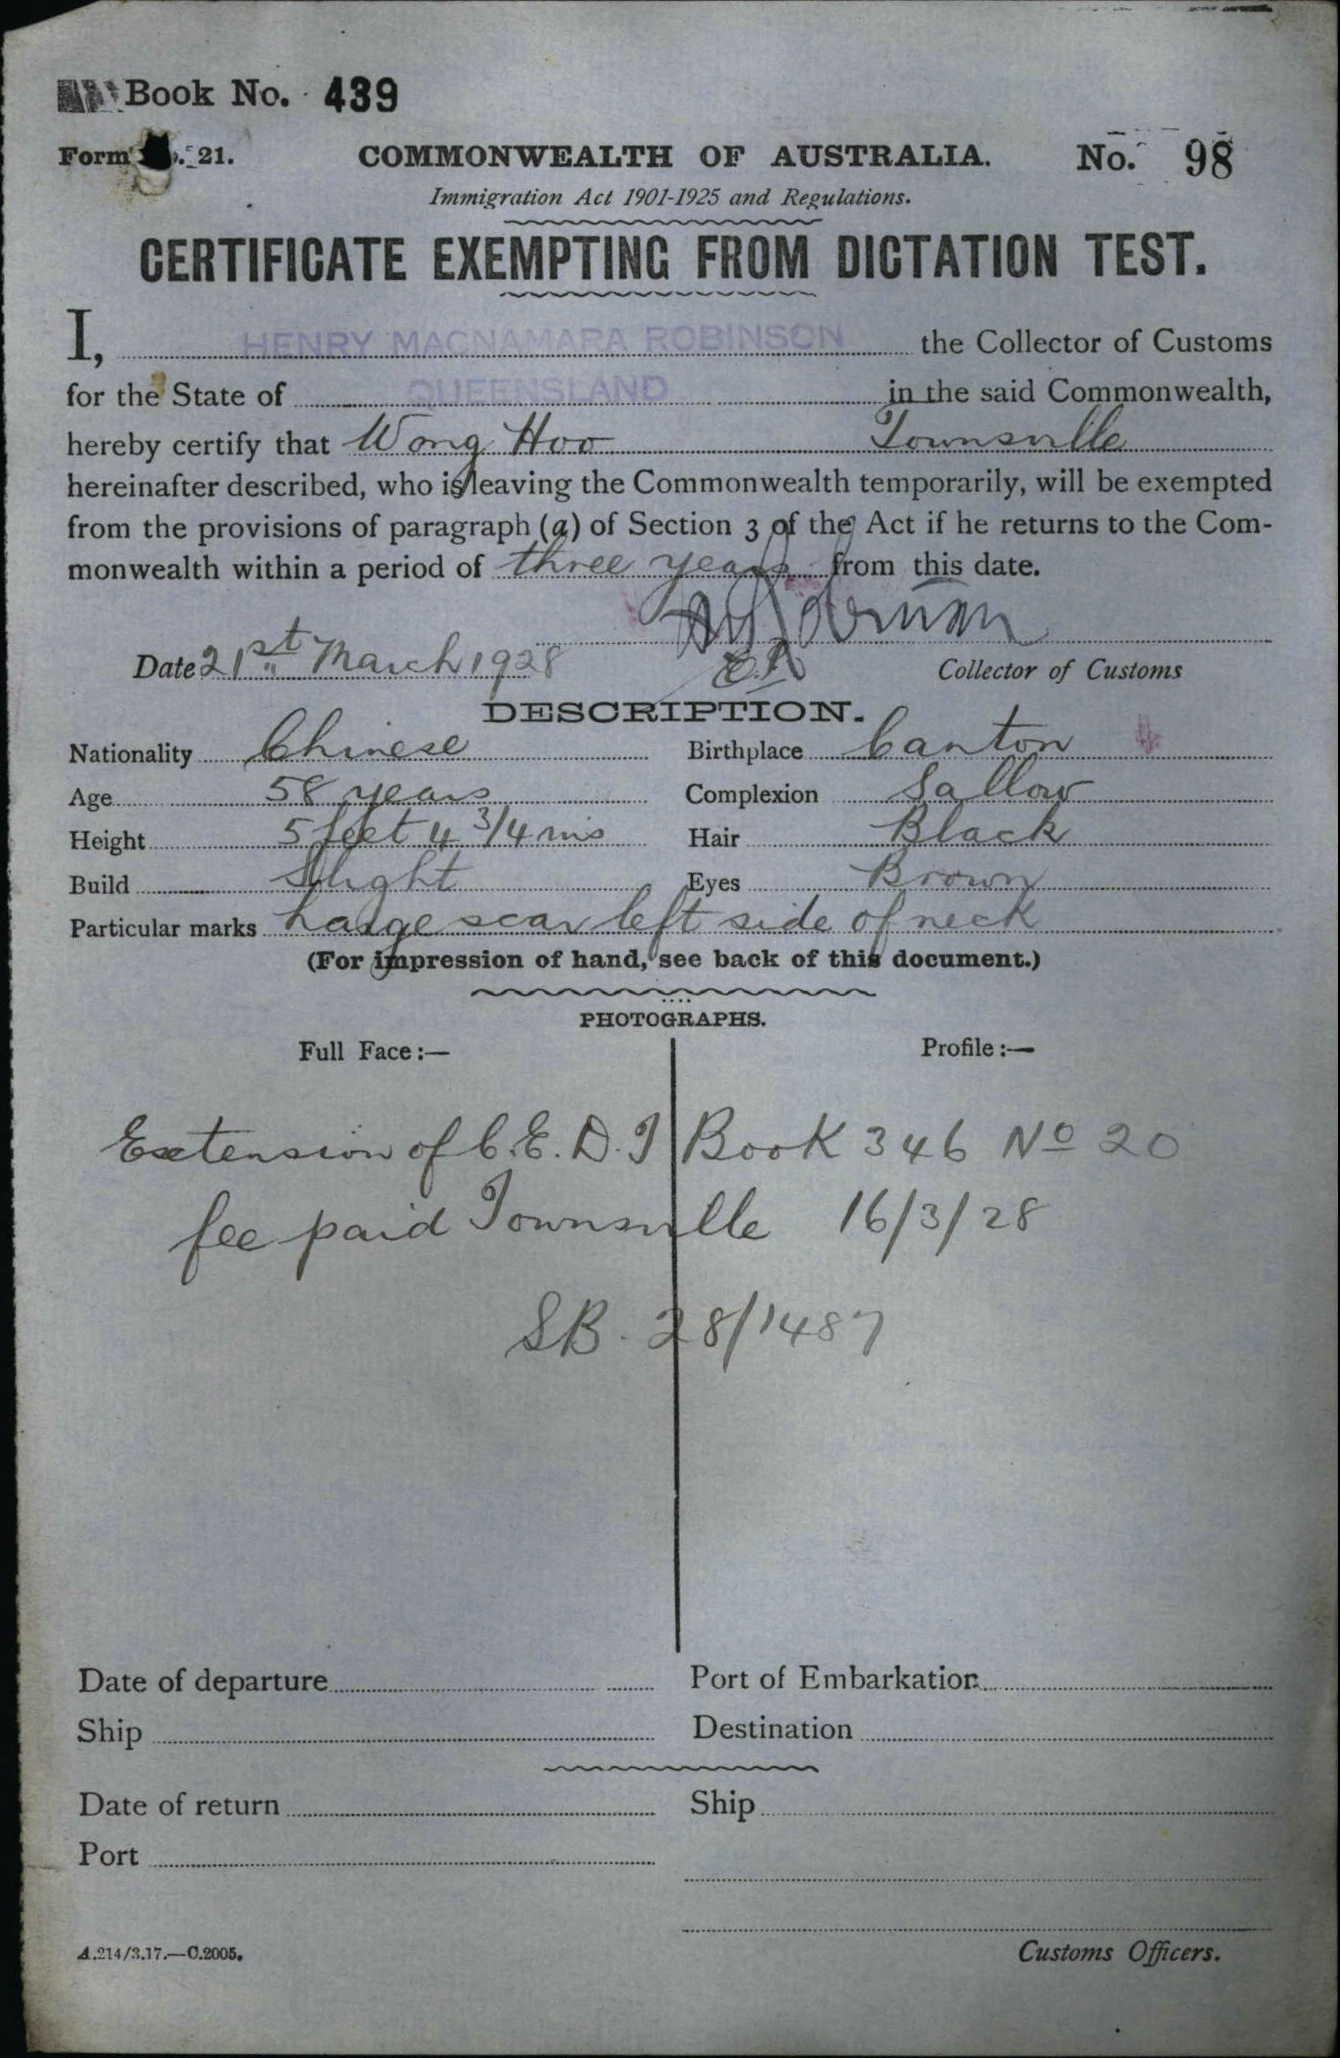 Book No. 439
Form . 21. COMMONWEALTH OF AUSTRALIA. No. 98
Immigration Act 1901-1925 and Regulations.
CERTIFICATE EXEMPTING FROM DICTATION TEST.
I, HENRY MACNAMARA ROBINSON the Collector of Customs
for the State of QUEENSLAND in the said Commonwealth,
hereby certify that Wong Hoo Townsville
hereinafter described, who is leaving the Commonwealth temporarily, will be exempted
from the provisions of paragraph (a) of Section 3 of the Act if he returns to the Com-
monwealth within a period of three years from this date.
Date 21st March 1928 Collector of Customs
DESCRIPTION.
Nationality Chinese Birthplace Canton
Age 58 years Complexion Sallow
Height 5 feet 4 3/4 ins Hair Black
Build Slight Eyes Brown
Particular marks Large scar left side of neck
(For impression of hand, see back of this document.)
PHOTOGRAPHS.
Full Face :— Profile :—
Extension of C.E.D.T Book 346 No 20
fee paid Townsville 16/3/28
SB. 28/1487
Date of departure Port of Embarkation
Ship Destination
Date of return Ship
Port
A.214/3.17.—C.2005. Customs Officers.